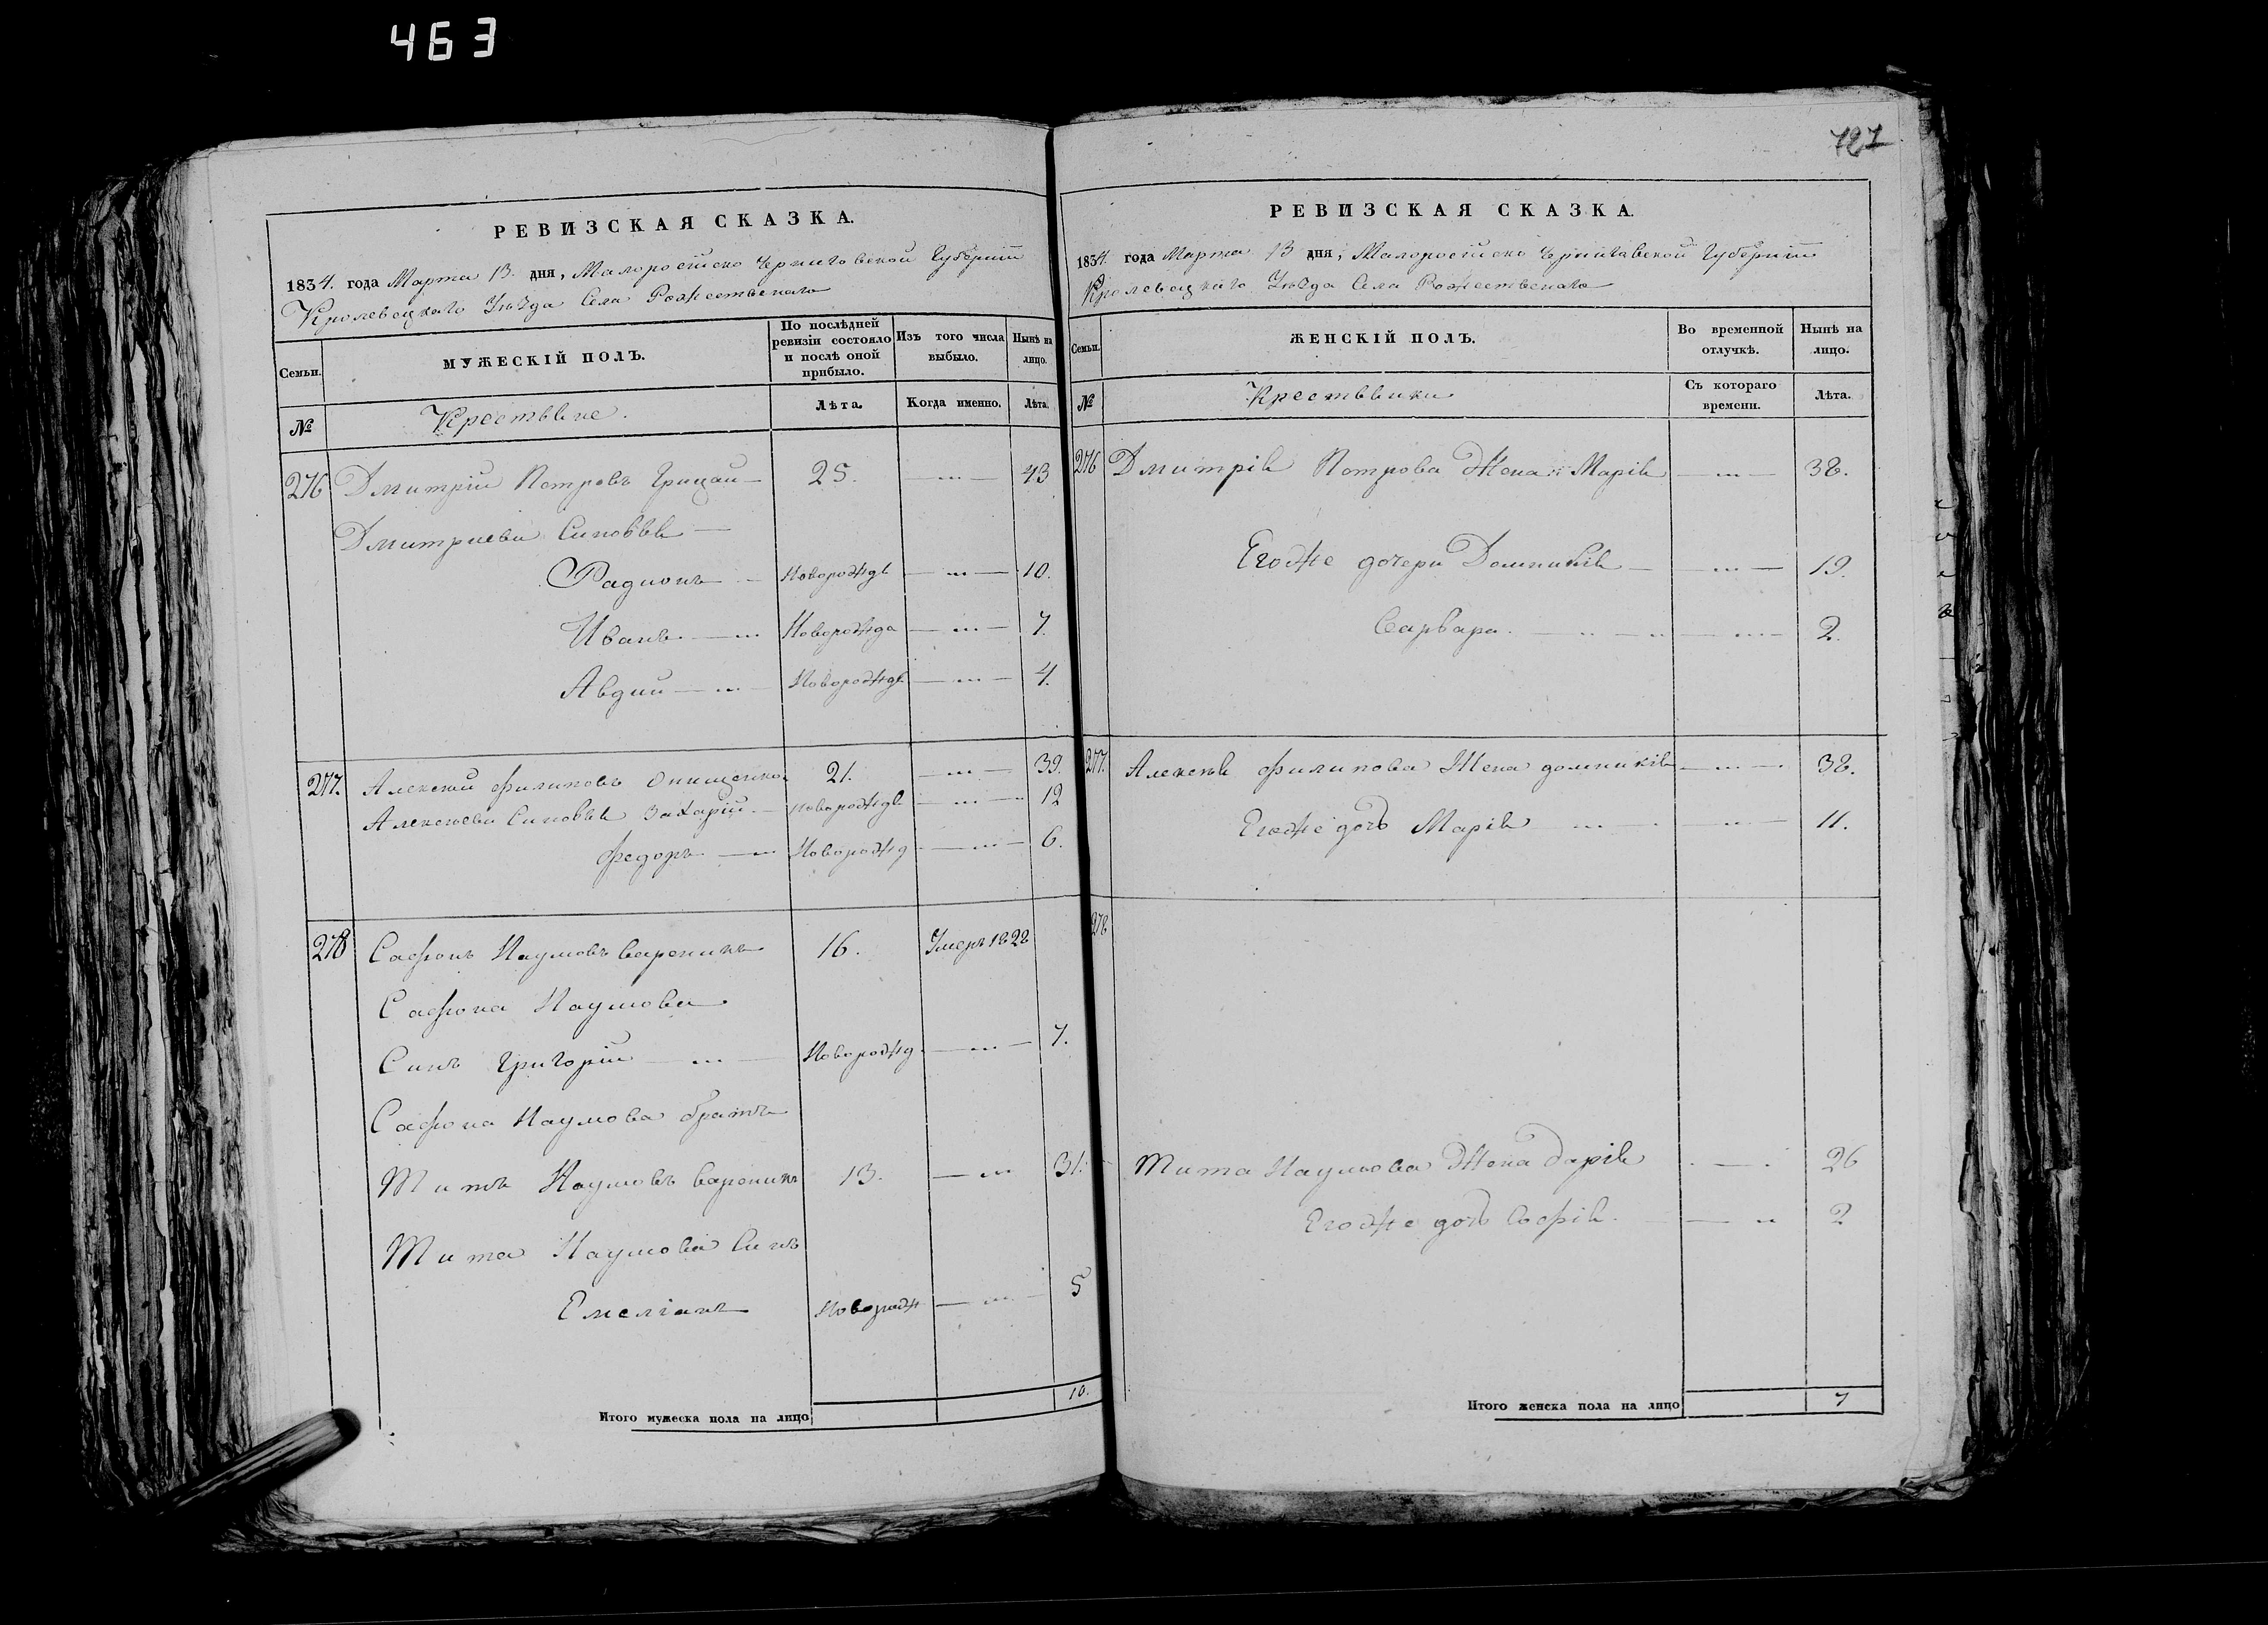 463
727
РЕВИЗСКАЯ СКАЗКА.
1834. года Марта 13. дня, Малоросийско Черниговской Губернии
Кролевецкаго Уезда Села Рожественаго
Семьи.
МУЖЕСКІЙ ПОЛЪ.
По послѣдней ревизіи состояло и послѣ оной прибыло.
Изъ того числа выбыло.
Нынѣ на лицо.
№
Крестьяне.
Лѣта.
Когда именно.
Лѣта.
276 Дмитрій Петровъ Грицай 25. 43
Дмитриеви Синовья
Радионъ Новорожд 10.
Иванъ Новорожда 7.
Авдий Новорожд 4.
277. Алексей Филиповъ Онищенко 21. 39.
Алексеева Синовья Захарій Новорожд 12
Федоръ Новорожд 6.
278 Сафонъ Наумовъ Вареникъ 16. Умеръ 1828
Сафона Наумова
Синъ Григорій Новорожд 7.
Сафона Наумова братъ
Титъ Наумовъ Вареникъ 13. 31.
Тита Наумова Синъ
Емеліанъ Новорожд 5
Итого мужеска пола на лицо 10.
РЕВИЗСКАЯ СКАЗКА.
1834. года Марта 13 дня, Малоросийско Черниговской Губернии
Кролевецкаго Уезда Села Рожественаго
Семьи.
ЖЕНСКІЙ ПОЛЪ.
Во временной отлучкѣ.
Нынѣ на лицо.
№
Крестьянки
Съ котораго времени.
Лѣта.
276 Дмитрія Петрова Жена Марія 38.
Егоже дочери Домникія 19.
Варвара 2.
277. Алексея Филипова Жена домникія 38.
Егоже дочь Марія 11.
278
Тита Наумова Жена дарія 26
Егоже дочь Софія 2
Итого женска пола на лицо 7